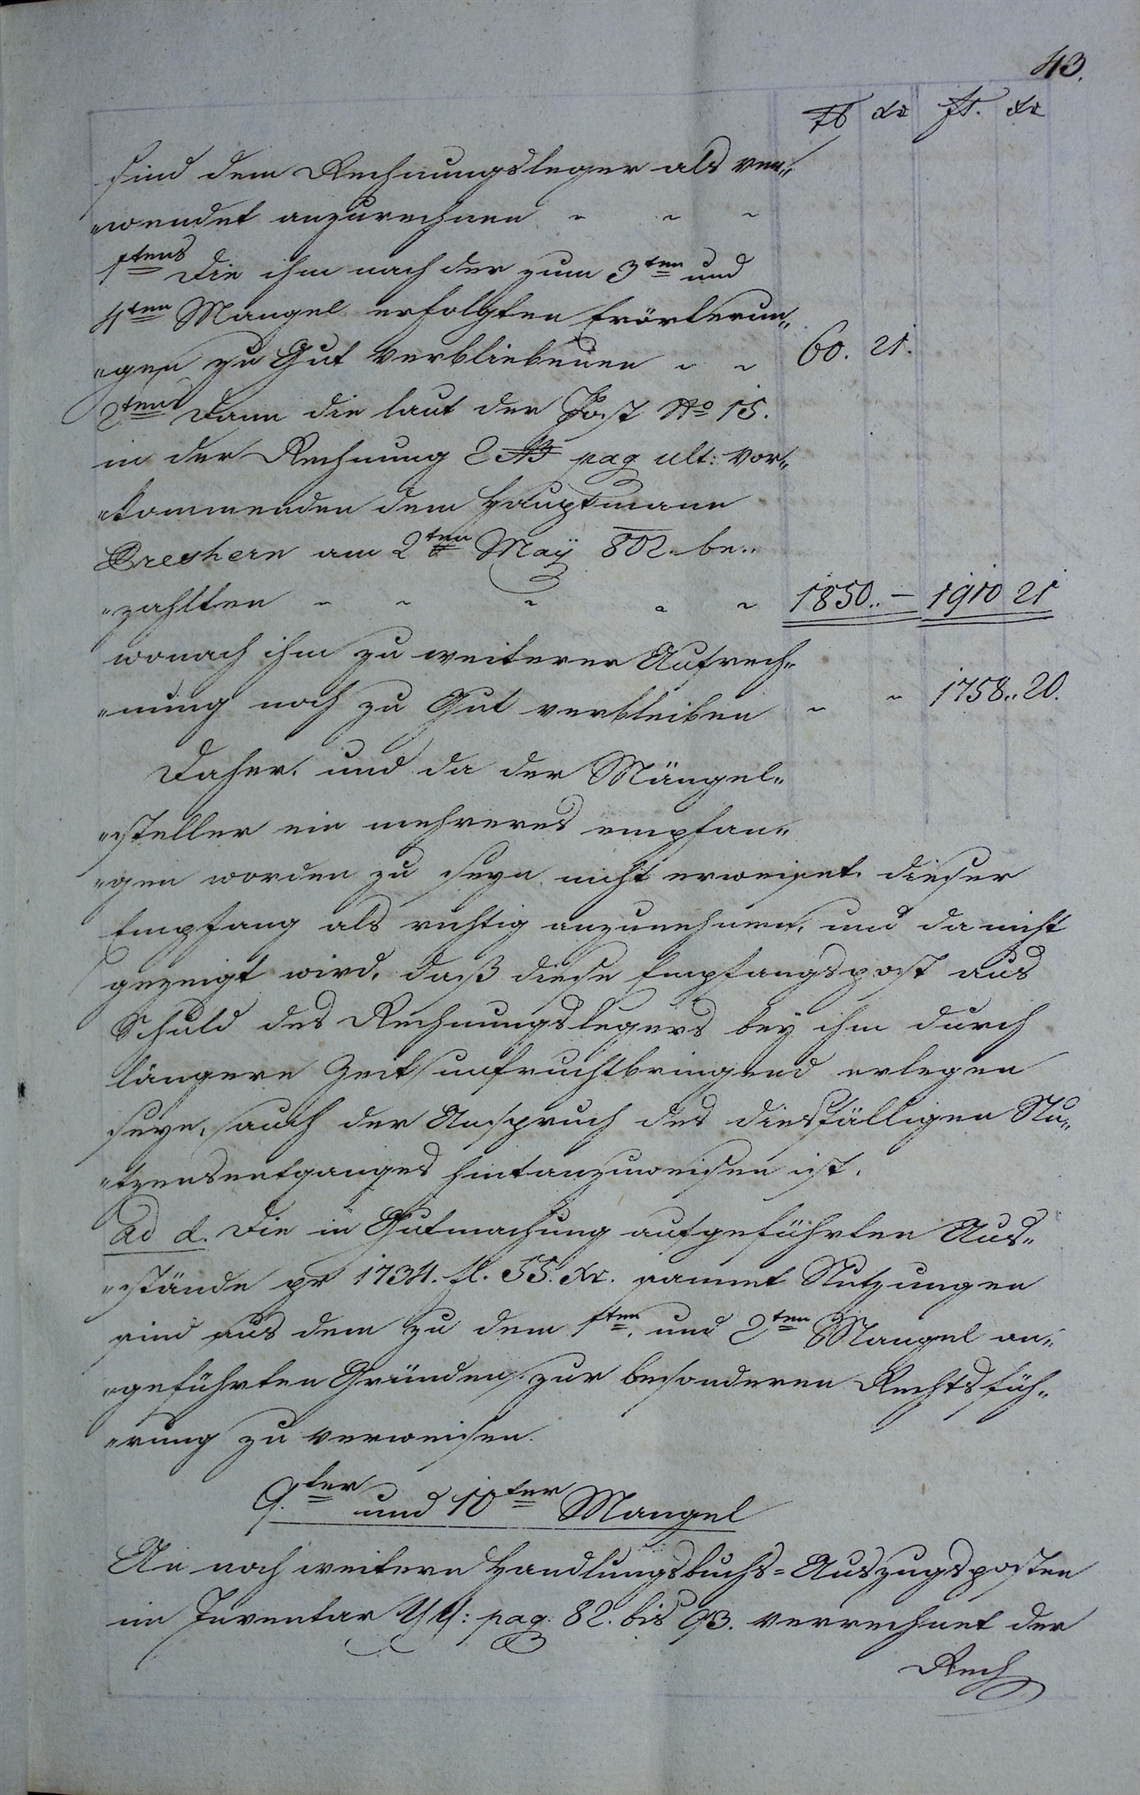 43.
fl xr fl. xr
sind dem Rechnungsleger als ver„
„wendet anzurechnen " " "
1tens Die ihm nach der zum 3ten und
4ten Mangel erfolgten Erörterun„
„gen zu Gut verbliebenen " " 60. 21.
2tens Dann die laut der Post No 15.
in der Rechnung 2 pag ult: vor„
„kommenden dem Hauptmann
Preshern am 2ten Maÿ 802. be„
„zahlten " " " " " 1850.. – 1910 21
wonach ihm zu weiterer Aufrech„
„nung noch zu Gut verbleiben " " 1758.. 20.
Daher, und da der Mängel„
„steller ein mehreres empfan„
„gen worden zu seyn nicht erweiset, dieser
Empfang als richtig anzunehmen, und da nicht
gezeigt wird, daß diese Empfangspost aus
Schuld des Rechnungslegers beÿ ihm durch
längere Zeit unfruchtbringend erlegen
seye, auch der Anspruch des diesfälligen Nu„
„tzensentganges hintanzuweisen ist.
ad d. Die in Gutmachung aufgeführten Aus„
„stände pr 1734. fl. 55. Xr. sammt Nutzungen
sind aus dem zu dem 1ten, und 2ten Mangel an„
„geführten Gründen zur besonderen Rechtsfüh„
„rung zu verweisen.
9.ter und 10ter Mangel
An noch weitern Handlungsbuchs-Auszugsposten
im Inventar YY: pag: 82. bis 93. verrechnet der
Rech